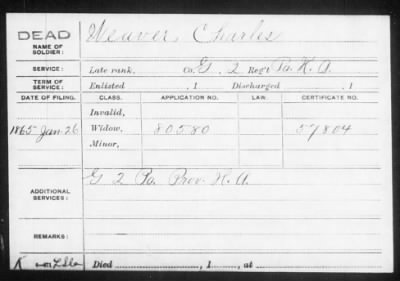 DEAD
NAME OF SOLDIER:
Weaver, Charles
SERVICE: Late rank, Co. G, 2 Reg't Pa. H. A.
TERM OF SERVICE: Enlisted , 1 Discharged , 1
DATE OF FILING. CLASS. APPLICATION NO. LAW. CERTIFICATE NO.
Invalid,
1865 Jan 26 Widow, 80580 57804
Minor,
ADDITIONAL SERVICES: G 2 Pa. Prov. H. A.
REMARKS:
K
Died , 1 , at